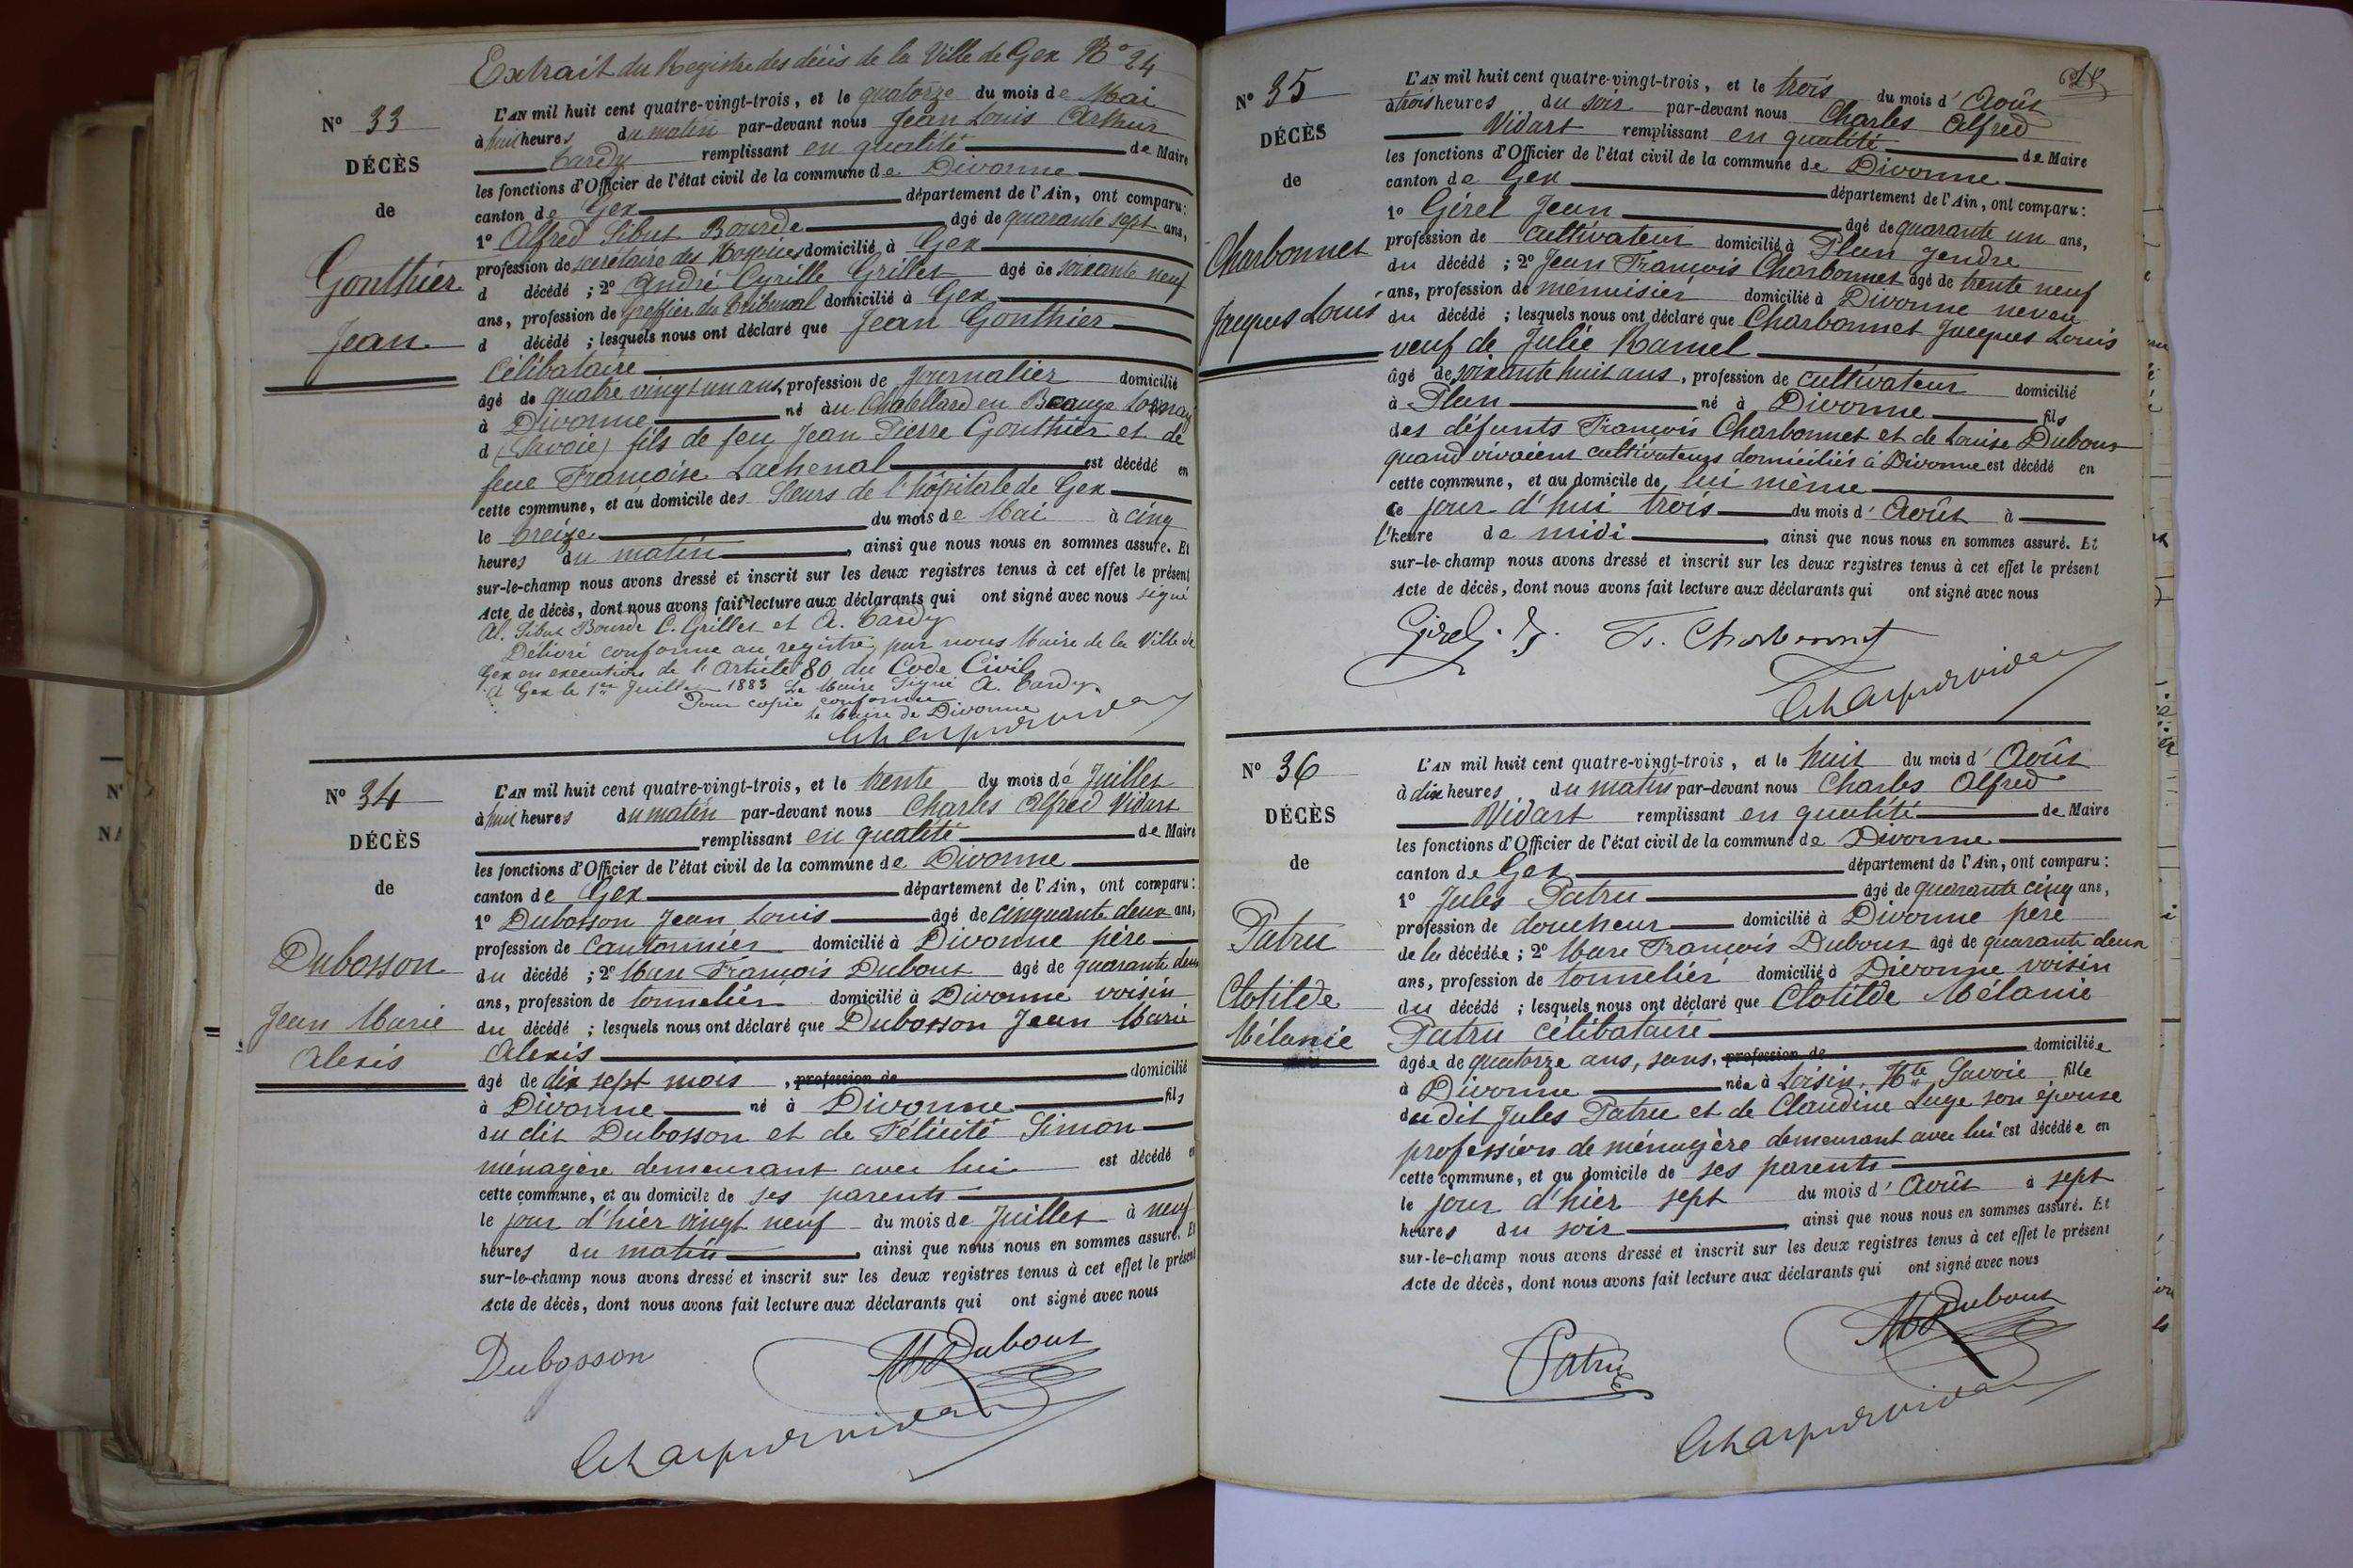 Extrait du Registre des décès de la Ville de Gex N° 24
N° 33
DÉCÈS
de
Gonthier
Jean
L'AN mil huit cent quatre-vingt-trois, et le quatorze du mois de Mai
à huit heures du matin par-devant nous Jean Louis Arthur
Tardy remplissant en qualité de Maire
les fonctions d'Officier de l'état civil de la commune de Divonne
canton de Gex département de l'Ain, ont comparu:
1° Alfred Sibut Bourde âgé de quarante sept ans,
profession de secrétaire des Hospices domicilié à Gex
d décédé ; 2° André Cyrille Grillet âgé de soixante neuf
ans, profession de Greffier du Tribunal domicilié à Gex
d décédé ; lesquels nous ont déclaré que Jean Gonthier
Célibataire
âgé de quatre vingt un ans, profession de Journalier domicilié
à Divonne né au Chatellard en Beauge
d (Savoie) fils de feu Jean Pierre Gonthier et de
feue Françoise Lachenal est décédé en
cette commune, et au domicile des Sœurs de l'hôpital de Gex
le treize du mois de Mai à cinq
heures du matin, ainsi que nous nous en sommes assuré. Et
sur-le-champ nous avons dressé et inscrit sur les deux registres tenus à cet effet le présent
Acte de décès, dont nous avons fait lecture aux déclarants qui ont signé avec nous signé
Al. Sibut Bourde C. Grillet et A. Tardy
Délivré conforme au registre par nous Maire de la Ville de
Gex en exécution de l'Article 80 du Code Civil
A Gex le 1er Juillet 1883 Le Maire Signé A. Tardy.
Pour copie conforme
le Maire de Divonne
N° 34
DÉCÈS
de
Dubosson
Jean Marie
Alexis
L'AN mil huit cent quatre-vingt-trois, et le trente du mois de Juillet
à huit heures du matin par-devant nous Charles Alfred Vidart
remplissant en qualité de Maire
les fonctions d'Officier de l'état civil de la commune de Divonne
canton de Gex département de l'Ain, ont comparu:
1° Dubosson Jean Louis âgé de cinquante deux ans,
profession de Cantonnier domicilié à Divonne père
du décédé ; 2° Marc François Dubout âgé de quarante deux
ans, profession de tonnelier domicilié à Divonne voisin
du décédé ; lesquels nous ont déclaré que Dubosson Jean Marie
Alexis
âgé de dix sept mois, profession de domicilié
à Divonne né à Divonne fils
du dit Dubosson et de Félicité Simon
ménagère demeurant avec lui est décédé en
cette commune, et au domicile de ses parents
le jour d'hier vingt neuf du mois de Juillet à neuf
heures du matin, ainsi que nous nous en sommes assuré. Et
sur-le-champ nous avons dressé et inscrit sur les deux registres tenus à cet effet le présent
Acte de décès, dont nous avons fait lecture aux déclarants qui ont signé avec nous
Dubosson
MF Dubout
N° 35
DÉCÈS
de
Charbonnet
Jacques Louis
L'AN mil huit cent quatre-vingt-trois, et le trois du mois d'Août
à trois heures du soir par-devant nous Charles Alfred
Vidart remplissant en qualité de Maire
les fonctions d'Officier de l'état civil de la commune de Divonne
canton de Gex département de l'Ain, ont comparu:
1° Girel Jean âgé de quarante un ans,
profession de cultivateur domicilié à Plan gendre
du décédé ; 2° Jean François Charbonnet âgé de trente neuf
ans, profession de menuisier domicilié à Divonne neveu
du décédé ; lesquels nous ont déclaré que Charbonnet Jacques Louis
veuf de Julie Ramel
âgé de soixante huit ans, profession de cultivateur domicilié
à Plan né à Divonne fils
des défunts François Charbonnet et de Louise Dubout
quand vivaient cultivateurs domiciliés à Divonne est décédé en
cette commune, et au domicile de lui même
ce jour d'hui trois du mois d'Août à
l'heure de midi, ainsi que nous nous en sommes assuré. Et
sur-le-champ nous avons dressé et inscrit sur les deux registres tenus à cet effet le présent
Acte de décès, dont nous avons fait lecture aux déclarants qui ont signé avec nous
Girel. J. Fs. Charbonnet
N° 36
DÉCÈS
de
Patru
Clotilde
Mélanie
L'AN mil huit cent quatre-vingt-trois, et le huit du mois d'Août
à dix heures du matin par-devant nous Charles Alfred
Vidart remplissant en qualité de Maire
les fonctions d'Officier de l'état civil de la commune de Divonne
canton de Gex département de l'Ain, ont comparu:
1° Jules Patru âgé de quarante cinq ans,
profession de doucheur domicilié à Divonne père
de la décédée ; 2° Marc François Dubout âgé de quarante deux
ans, profession de tonnelier domicilié à Divonne voisin
du décédé ; lesquels nous ont déclaré que Clotilde Mélanie
Patru célibataire
âgée de quatorze ans, sans, profession de domiciliée
à Divonne née à Loisin, Hte Savoie fille
du dit Jules Patru et de Claudine Luge son épouse
profession de ménagère demeurant avec lui est décédée en
cette commune, et au domicile de ses parents
le jour d'hier sept du mois d'Août à sept
heures du soir, ainsi que nous nous en sommes assuré. Et
sur-le-champ nous avons dressé et inscrit sur les deux registres tenus à cet effet le présent
Acte de décès, dont nous avons fait lecture aux déclarants qui ont signé avec nous
Patru
MF Dubout